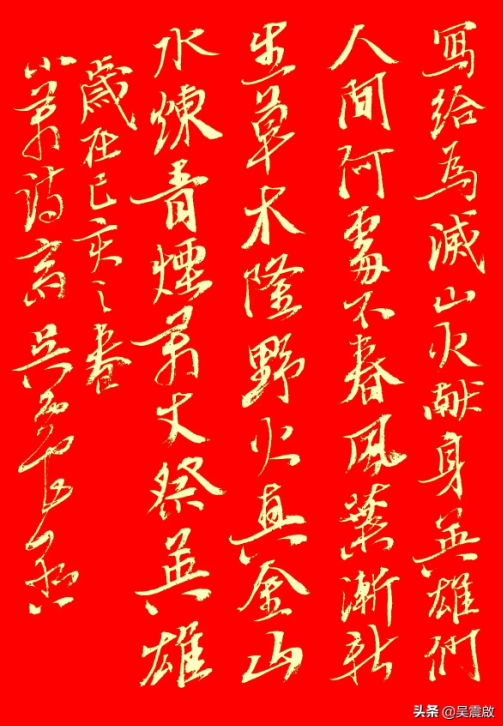 寫給為滅山火献身英雄們
人間何處不春風葉漸新
生草木隆野火真金山
水煉青煙萬丈祭英雄
歲在己亥之春
萬詩吳震啟
头条 @吴震啟